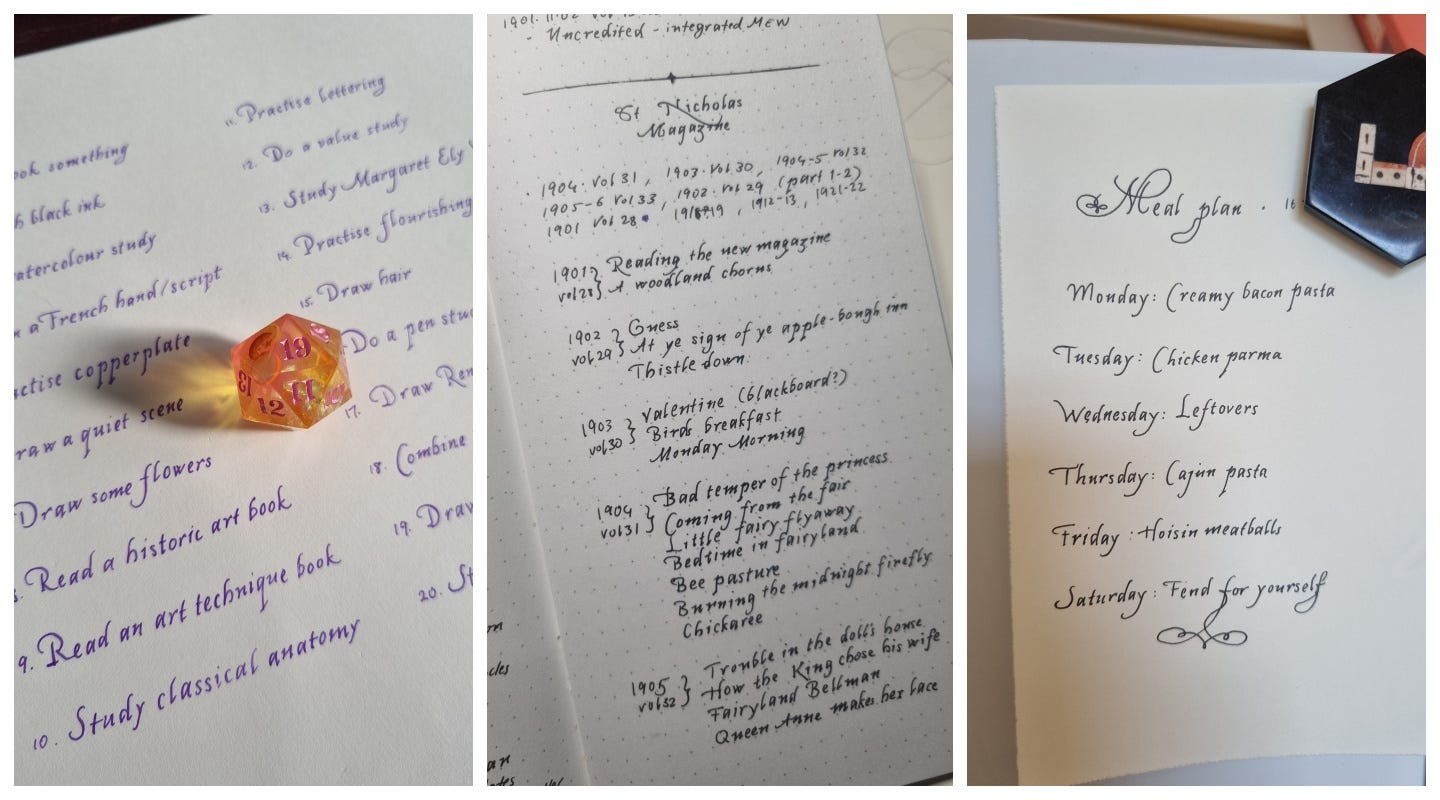 ook something
h black ink
atercolour study
a French hand/script
actise copperplate
raw a quiet scene
Draw some flowers
Read a historic art book
9. Read an art technique book
10. Study classical anatomy
11. Practise lettering
12. Do a value study
13. Study Margaret Ely
14. Practise flourishing
15. Draw hair
Do a pen stud
17. Draw Ren
18. Combine
19. Draw
20. St
19
13
11
12
- Uncredited - integrated MEW
St Nicholas
Magazine
1904. Vol 31, 1903. Vol 30, 1904-5 Vol 32
1905-6 Vol 33, 1902. Vol 29 (part 1-2)
1901 Vol 28 , 1912-13, 1921-22
1901 } Reading the new magazine
vol 28 } A woodland chorus
1902 } Guess
vol 29 } At ye sign of ye apple-bough inn
Thistle down
1903 } Valentine (blackboard?)
vol 30 } Birds breakfast
Monday Morning
1904 } Bad temper of the princess
vol 31 } Coming from the fair
Little fairy flyaway
Bedtime in fairyland
Bee pasture
Burning the midnight firefly
Chickaree
1905 } Trouble in the doll's house
vol 32 } How the King chose his wife
Fairyland Bellman
Queen Anne makes her lace
Meal plan . 16
Monday: Creamy bacon pasta
Tuesday: Chicken parma
Wednesday: Leftovers
Thursday: Cajun pasta
Friday: Hoisin meatballs
Saturday: Fend for yourself